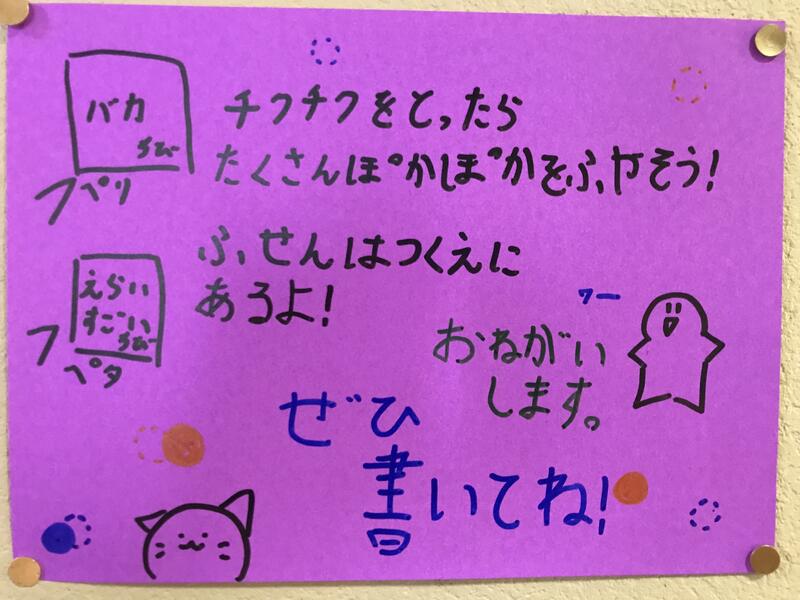 バカ
ちび
ペリ
チクチクをとったら
たくさんぽかぽかをふやそう!
えらい
すごい
ちび
ペタ
ふせんはつくえに
あるよ!
ワー
おねがい
します。
ぜひ
書いてね!